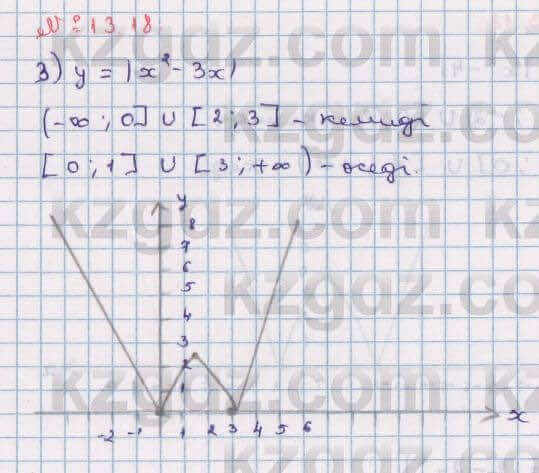 № 13.18
3) y = |x² - 3x|
(-∞; 0] ∪ [2; 3] - кемиді
[0; 1] ∪ [3; +∞) - өседі.
y
8
7
6
5
4
3
2
1
-2 -1 1 2 3 4 5 6 x
kzgdz.com